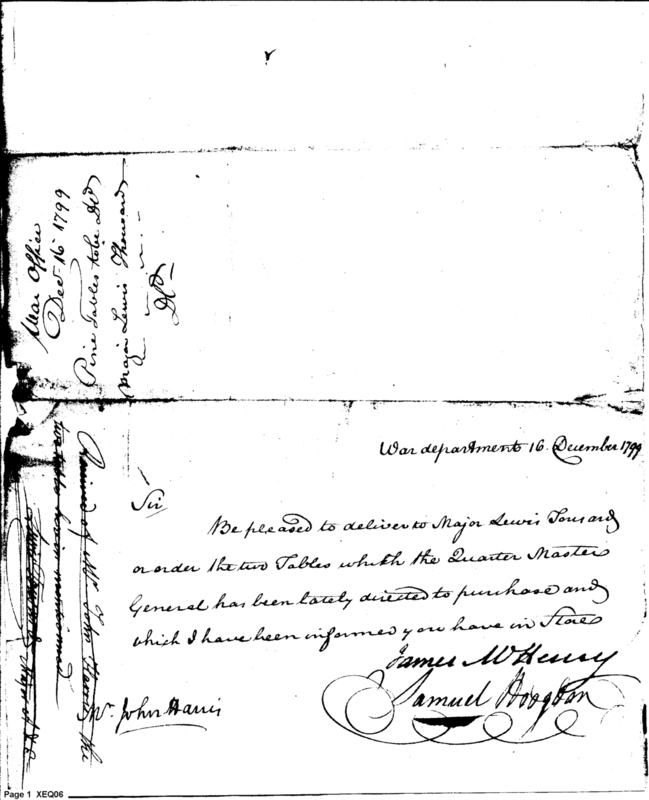 War Office
Decr 16th 1799
Pine Tables to be Dd
Major Lewis Thousard
Dd
War department 16. December 1799
Sir
Be pleased to deliver to Major Lewis Tousard
or order the two Tables which the Quarter Master
General has been lately directed to purchase and
which I have been informed you have in Store
James McHenry
Samuel Hodgdon
Mr. John Harris
of Mr John Harris the
two tables herein mentioned
Page 1 XEQ06